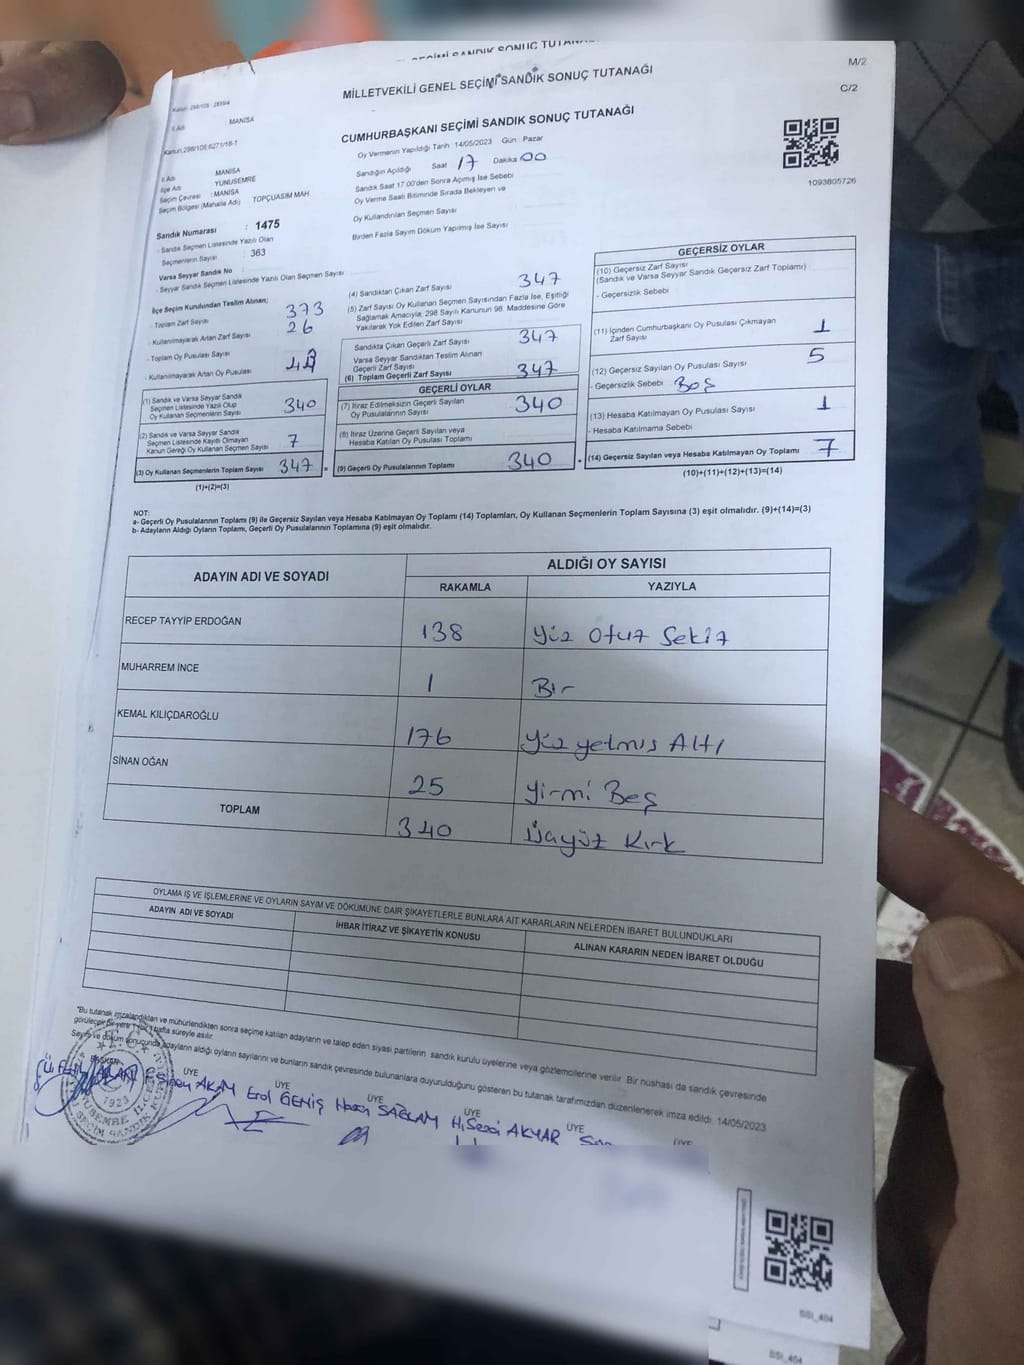 MİLLETVEKİLİ GENEL SEÇİMİ SANDIK SONUÇ TUTANAĞI
M/2
C/2
İl Adı : MANİSA
CUMHURBAŞKANI SEÇİMİ SANDIK SONUÇ TUTANAĞI
Kanun,298/105,6271/18-1
Oy Vermenin Yapıldığı Tarih 14/05/2023 Gün : Pazar
Sandığın Açıldığı Saat 17 Dakika 00
1093805726
İl Adı : MANİSA
İlçe Adı : YUNUSEMRE
Seçim Çevresi : MANİSA
Seçim Bölgesi (Mahalle Adı) TOPÇUASIM MAH.
Sandık Saat 17.00'den Sonra Açılmış İse Sebebi
Oy Verme Saati Bitiminde Sırada Bekleyen ve
Oy Kullandırılan Seçmen Sayısı
Birden Fazla Sayım Döküm Yapılmış İse Sayısı
Sandık Numarası : 1475
- Sandık Seçmen Listesinde Yazılı Olan
Seçmenlerin Sayısı : 363
Varsa Seyyar Sandık No :
- Seyyar Sandık Seçmen Listesinde Yazılı Olan Seçmen Sayısı
İlçe Seçim Kurulundan Teslim Alınan;
- Toplam Zarf Sayısı 373
- Kullanılmayarak Artan Zarf Sayısı 26
- Toplam Oy Pusulası Sayısı
- Kullanılmayarak Artan Oy Pusulası
(1) Sandık ve Varsa Seyyar Sandık
Seçmen Listesinde Yazılı Olup
Oy Kullanan Seçmenlerin Sayısı 340
(2) Sandık ve Varsa Seyyar Sandık
Seçmen Listesinde Kayıtlı Olmayan
Kanun Gereği Oy Kullanan Seçmen Sayısı 7
(3) Oy Kullanan Seçmenlerin Toplam Sayısı 347 =
(1)+(2)=(3)
(4) Sandıktan Çıkan Zarf Sayısı 347
(5) Zarf Sayısı Oy Kullanan Seçmen Sayısından Fazla İse, Eşitliği
Sağlamak Amacıyla, 298 Sayılı Kanunun 98. Maddesine Göre
Yakılarak Yok Edilen Zarf Sayısı
Sandıkta Çıkan Geçerli Zarf Sayısı 347
Varsa Seyyar Sandıktan Teslim Alınan
Geçerli Zarf Sayısı
(6) Toplam Geçerli Zarf Sayısı 347
GEÇERLİ OYLAR
(7) İtiraz Edilmeksizin Geçerli Sayılan
Oy Pusulalarının Sayısı 340
(8) İtiraz Üzerine Geçerli Sayılan veya
Hesaba Katılan Oy Pusulası Toplamı
(9) Geçerli Oy Pusulalarının Toplamı 340 +
GEÇERSİZ OYLAR
(10) Geçersiz Zarf Sayısı
(Sandık ve Varsa Seyyar Sandık Geçersiz Zarf Toplamı)
- Geçersizlik Sebebi
(11) İçinden Cumhurbaşkanı Oy Pusulası Çıkmayan
Zarf Sayısı 1
(12) Geçersiz Sayılan Oy Pusulası Sayısı 5
- Geçersizlik Sebebi Boş
(13) Hesaba Katılmayan Oy Pusulası Sayısı 1
- Hesaba Katılmama Sebebi
(14) Geçersiz Sayılan veya Hesaba Katılmayan Oy Toplamı 7
(10)+(11)+(12)+(13)=(14)
NOT:
a- Geçerli Oy Pusulalarının Toplamı (9) ile Geçersiz Sayılan veya Hesaba Katılmayan Oy Toplamı (14) Toplamları, Oy Kullanan Seçmenlerin Toplam Sayısına (3) eşit olmalıdır. (9)+(14)=(3)
b- Adayların Aldığı Oyların Toplamı, Geçerli Oy Pusulalarının Toplamına (9) eşit olmalıdır.
ADAYIN ADI VE SOYADI
ALDIĞI OY SAYISI
RAKAMLA YAZIYLA
RECEP TAYYİP ERDOĞAN 138 Yüz Otuz Sekiz
MUHARREM İNCE 1 Bir
KEMAL KILIÇDAROĞLU 176 Yüz yetmiş Altı
SİNAN OĞAN 25 Yirmi Beş
TOPLAM 340 Üçyüz Kırk
OYLAMA İŞ VE İŞLEMLERİNE VE OYLARIN SAYIM VE DÖKÜMÜNE DAİR ŞİKAYETLERLE BUNLARA AİT KARARLARIN NELERDEN İBARET BULUNDUKLARI
ADAYIN ADI VE SOYADI İHBAR İTİRAZ VE ŞİKAYETİN KONUSU ALINAN KARARIN NEDEN İBARET OLDUĞU
"Bu tutanak imzalandıktan ve mühürlendikten sonra seçime katılan adayların ve talep eden siyasi partilerin sandık kurulu üyelerine veya gözlemcilerine verilir. Bir nüshası da sandık çevresinde
görülecek bir yere 1 (bir) hafta süreyle asılır.
Sayım ve döküm sonucunda adayların aldığı oyların sayılarını ve bunların sandık çevresinde bulunanlara duyurulduğunu gösteren bu tutanak tarafımızdan düzenlenerek imza edildi. 14/05/2023
BAŞKAN ÜYE ÜYE ÜYE ÜYE ÜYE ÜYE
Sinan AKAM Erol GENİŞ Hasan SAĞLAM H.Sezai AKYAR
1923
SSI_404
SSI_404